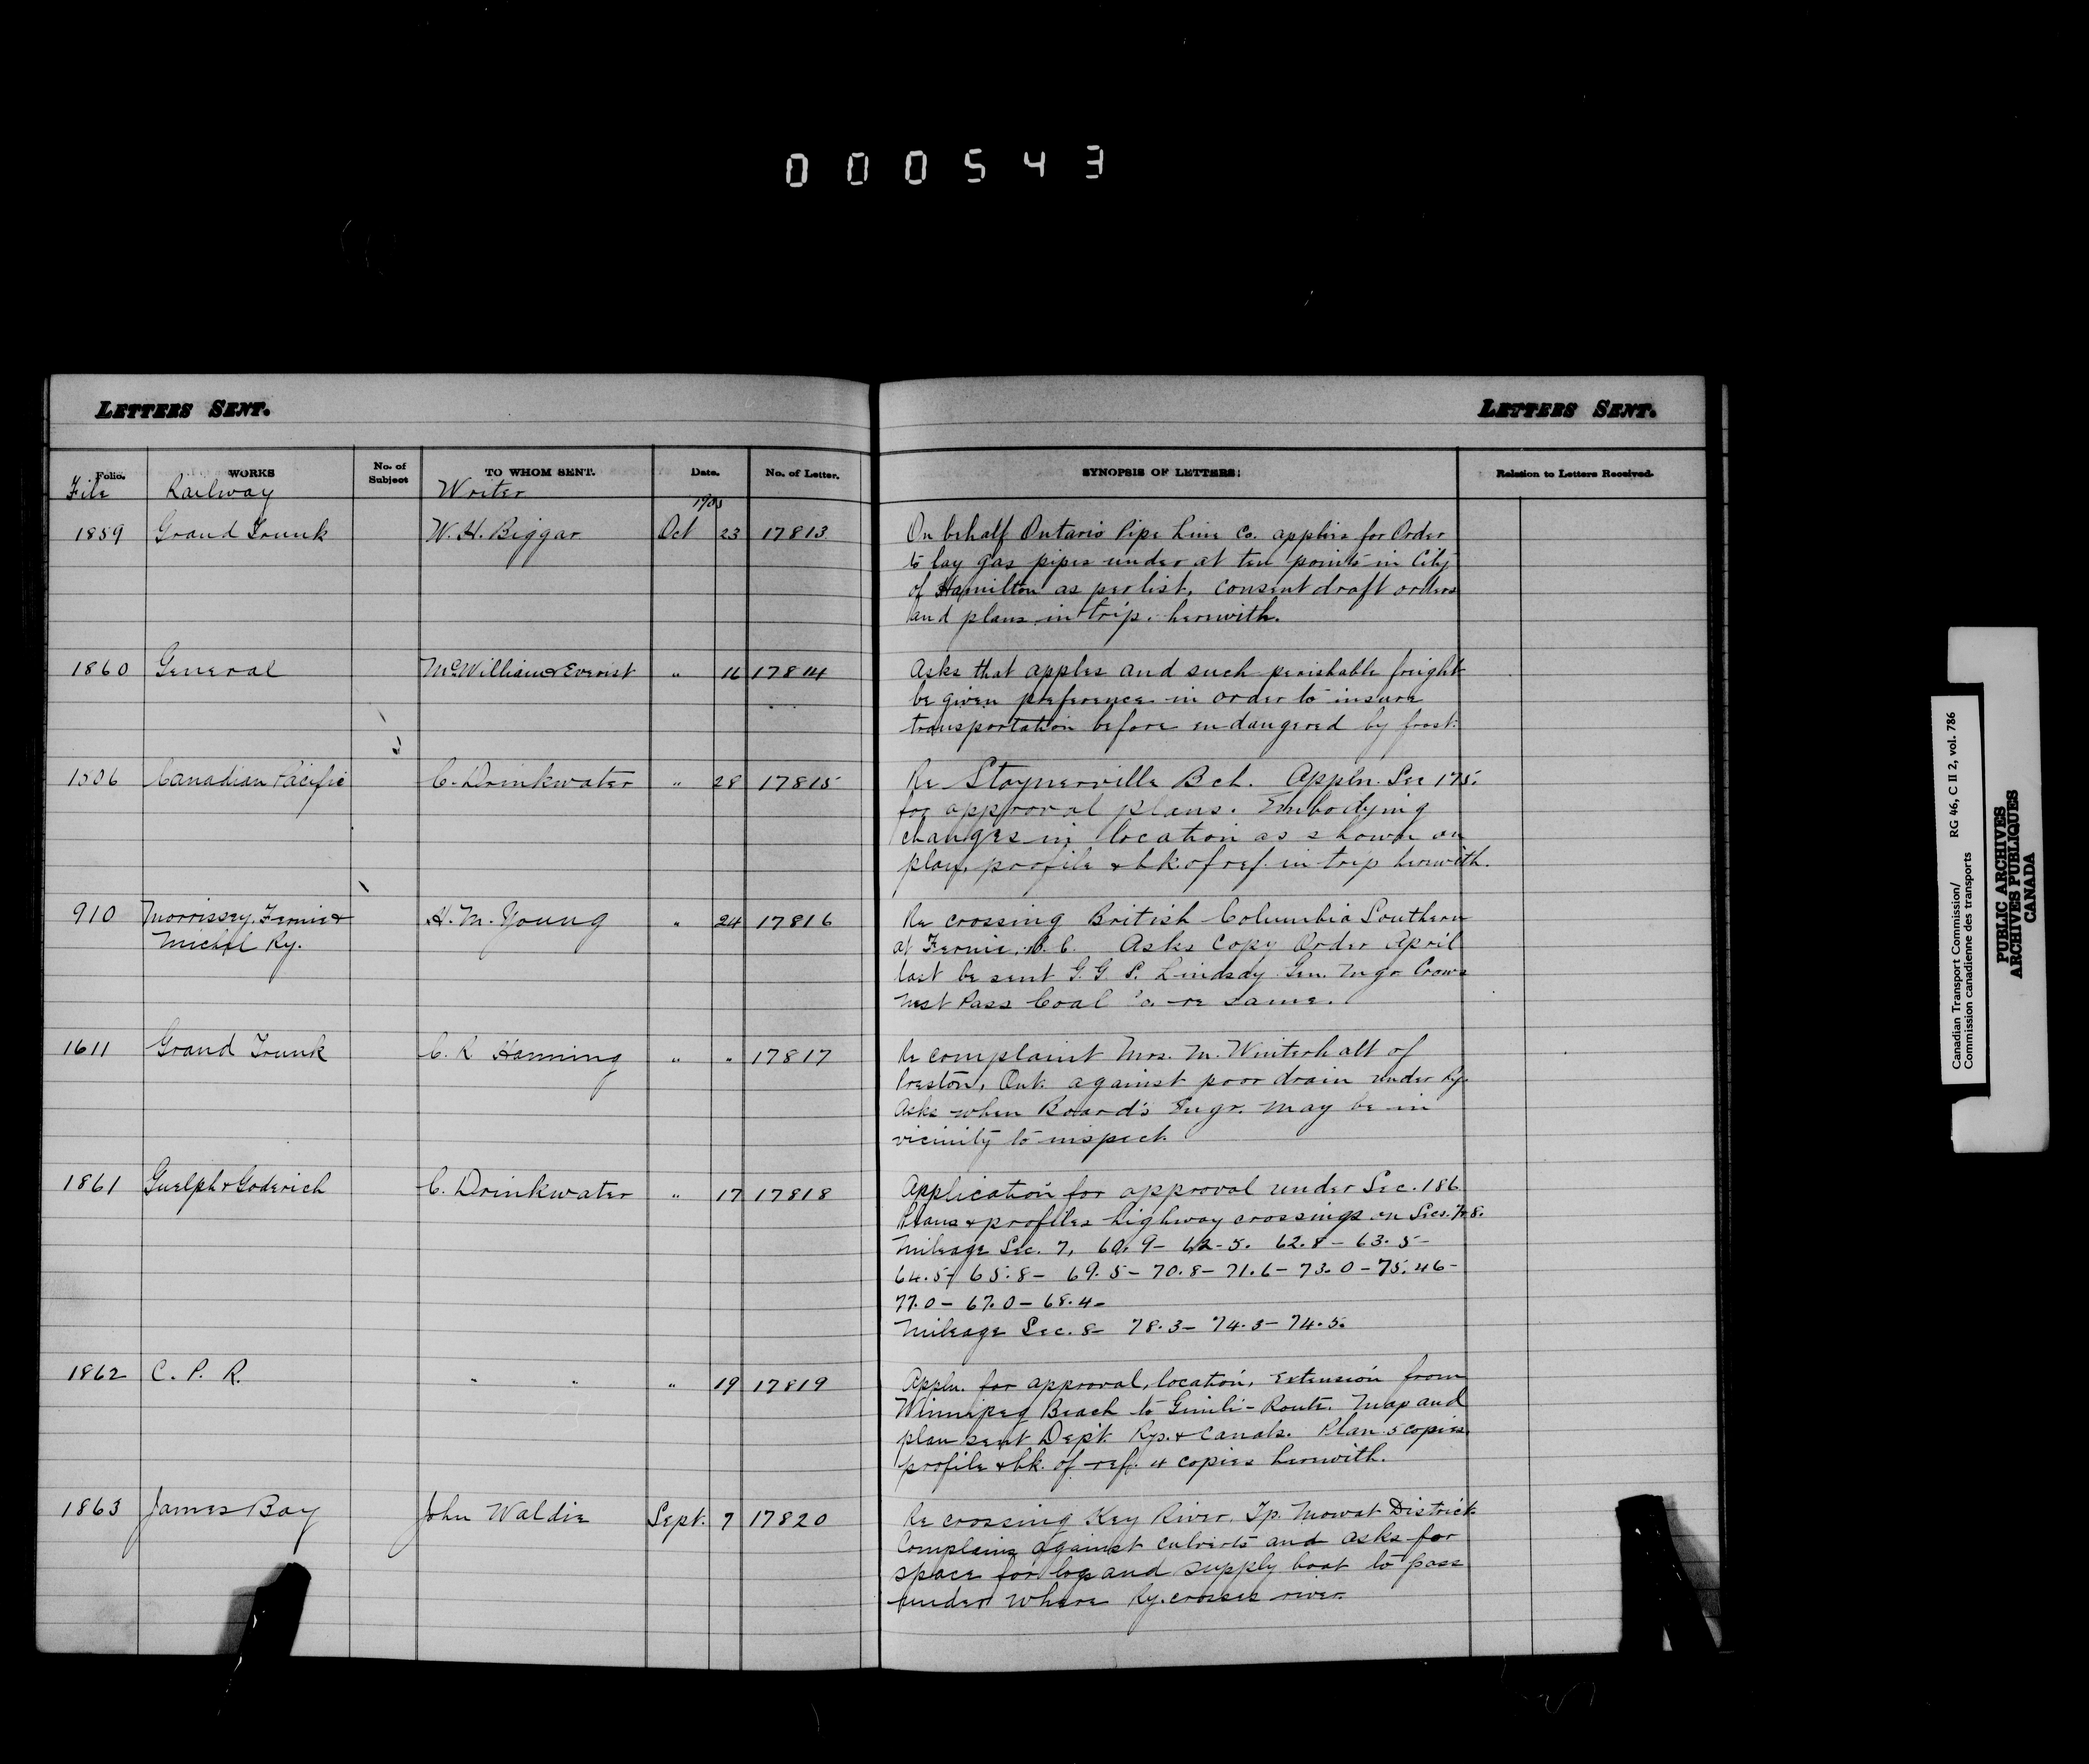 000543
LETTERS SENT.
LETTERS SENT.
Folio. WORKS No. of Subject TO WHOM SENT. Date. No. of Letter. SYNOPSIS OF LETTERS: Relation to Letters Received.
File Railway Writer
1905
1859 Grand Trunk W. H. Biggar Oct 23 17813 On behalf Ontario Pipe Line Co. applies for Order
to lay gas pipes under at ten points in City
of Hamilton as per list, consent draft orders
and plans in trip. herewith.
1860 General McWilliam & Everist " 16 17814 Asks that apples and such perishable freight
be given preference in order to insure
transportation before endangered by frost.
1506 Canadian Pacific C. Drinkwater " 28 17815 Re Staynerville Bch. Appln. Sec 175.
for approval plans. Embodying
changes in location as shown on
plan, profile & bk. of ref. in trip herewith.
910 Morrissey, Fernie & H. M. Young " 24 17816 Re crossing British Columbia Southern
Michel Ry. at Fernie, B. C. Asks copy Order April
last be sent G. G. S. Lindsay Gen. Mgr Crows
Nest Pass Coal Co. re same.
1611 Grand Trunk C. R. Hanning " " 17817 Re complaint Mrs. M. Winterhalt of
Preston, Ont. against poor drain under Ry.
Asks when Board's Engr. may be in
vicinity to inspect.
1861 Guelph & Goderich C. Drinkwater " 17 17818 Application for approval under Sec. 186
Plans & profiles highway crossings on Secs. 7 & 8.
Mileage Sec. 7, 60.9 - 62.5. 62.8 - 63.5 -
64.5 - 65.8 - 69.5 - 70.8 - 71.6 - 73.0 - 75.46 -
77.0 - 67.0 - 68.4 -
Mileage Sec. 8 - 78.3 - 74.3 - 74.5.
1862 C. P. R. " " " 19 17819 Appln. for approval, location, Extension from
Winnipeg Beach to Gimli - Route. Map and
plan sent Dept. Rys. & Canals. Plan 5 copies
profile & bk. of ref. 4 copies herewith.
1863 James Bay John Waldie Sept. 7 17820 Re crossing Key River, Tp. Mowat District.
Complains against culverts and asks for
space for logs and supply boat to pass
under where Ry. crosses river.
Canadian Transport Commission/ RG 46, C II 2, vol. 786
Commission canadienne des transports
PUBLIC ARCHIVES
ARCHIVES PUBLIQUES
CANADA